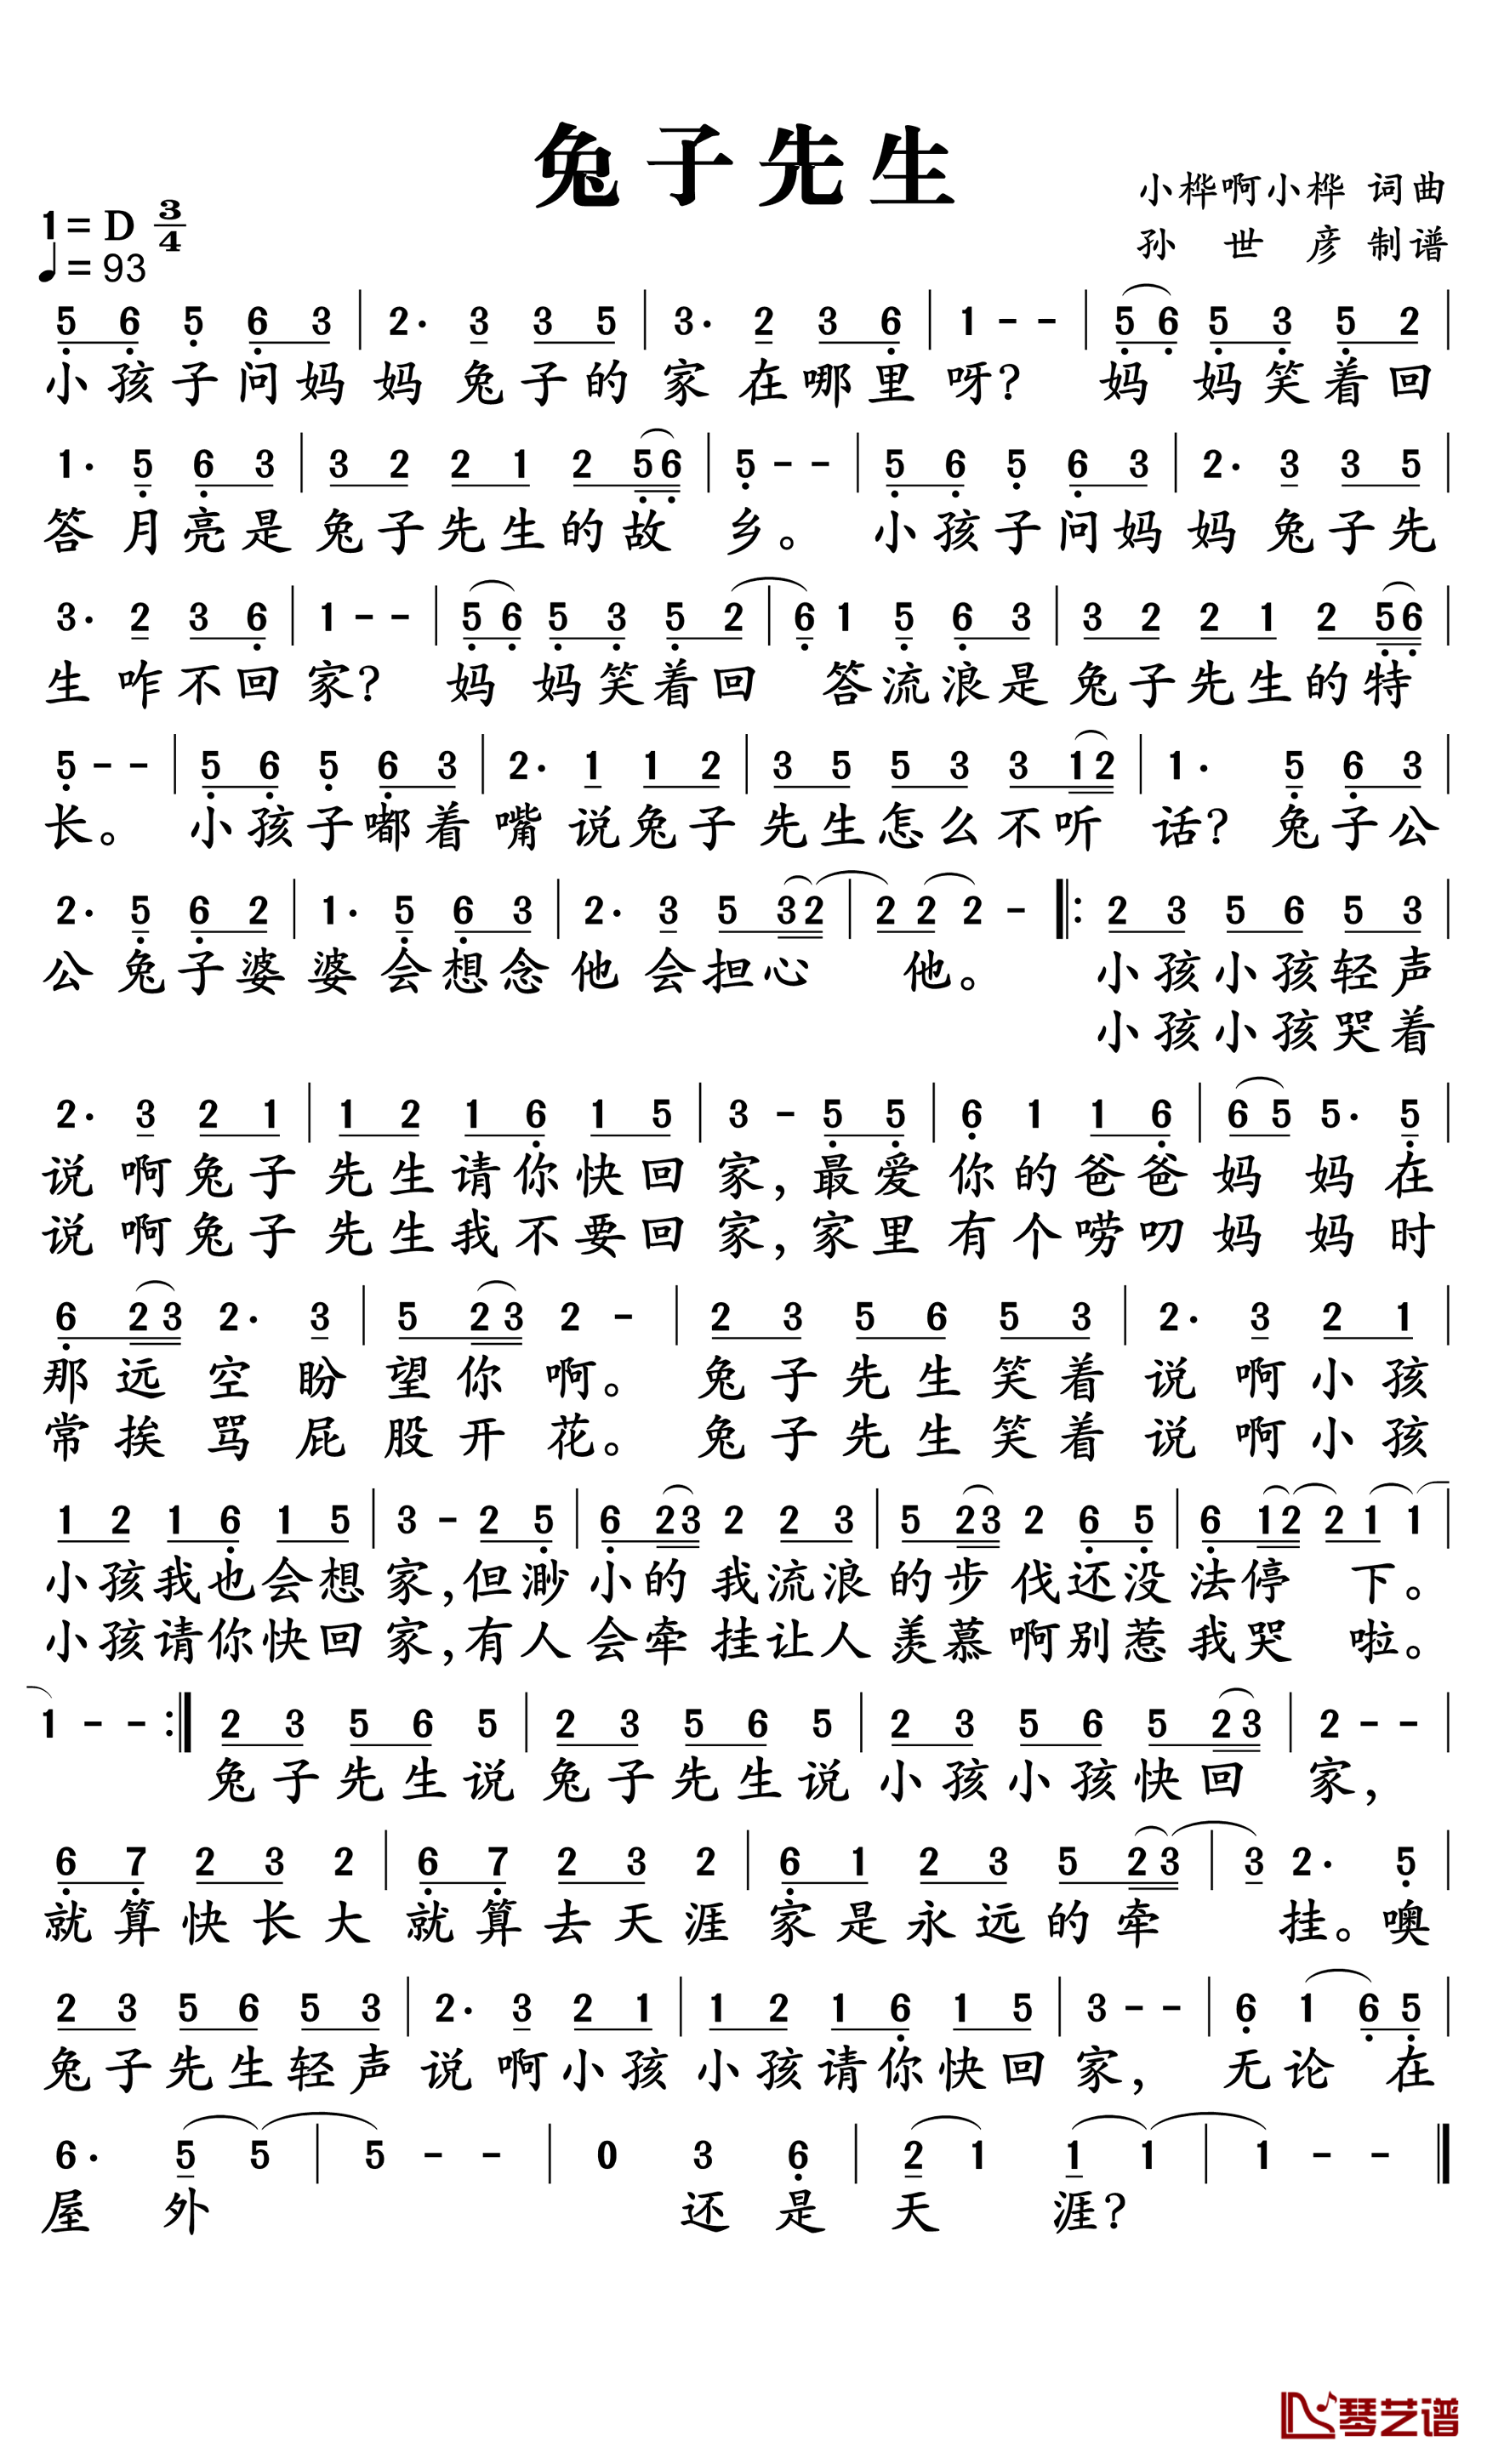 兔子先生
小桦啊小桦 词曲
1=D 3/4
孙 世 彦 制谱
♩=93
5 6 5 6 3 | 2· 3 3 5 | 3· 2 3 6 | 1 - - | 5 6 5 3 5 2 |
小孩子问妈 妈 兔子的 家 在哪里 呀? 妈 妈笑着回
1· 5 6 3 | 3 2 2 1 2 5 6 | 5 - - | 5 6 5 6 3 | 2· 3 3 5 |
答 月亮是 兔子先生的故 乡。 小孩子问妈 妈 兔子先
3· 2 3 6 | 1 - - | 5 6 5 3 5 2 | 6 1 5 6 3 | 3 2 2 1 2 5 6 |
生 咋不回 家? 妈 妈笑着回 答流浪是 兔子先生的特
5 - - | 5 6 5 6 3 | 2· 1 1 2 | 3 5 5 3 3 1 2 | 1· 5 6 3 |
长。 小孩子嘟着 嘴 说兔子 先生怎么不听 话? 兔子公
2· 5 6 2 | 1· 5 6 3 | 2· 3 5 3 2 | 2 2 2 - |: 2 3 5 6 5 3 |
公 兔子婆 婆 会想念 他 会担心 他。 小孩小孩轻声
小孩小孩哭着
2· 3 2 1 | 1 2 1 6 1 5 | 3 - 5 5 | 6 1 1 6 | 6 5 5· 5 |
说 啊兔子 先生请你快回 家,最爱 你的爸爸 妈 妈 在
说 啊兔子 先生我不要回 家,家里 有个唠叨 妈 妈 时
6 2 3 2· 3 | 5 2 3 2 - | 2 3 5 6 5 3 | 2· 3 2 1 |
那远 空 盼 望你 啊。 兔子先生笑着 说 啊小孩
常挨 骂 屁 股开 花。 兔子先生笑着 说 啊小孩
1 2 1 6 1 5 | 3 - 2 5 | 6 2 3 2 2 3 | 5 2 3 2 6 5 | 6 1 2 2 1 1 |
小孩我也会想 家,但渺 小的 我流浪 的步 伐还没 法停 下。
小孩请你快回 家,有人 会牵 挂让人 羡慕 啊别惹 我哭 啦。
1 - - :| 2 3 5 6 5 | 2 3 5 6 5 | 2 3 5 6 5 2 3 | 2 - - |
兔子先生说 兔子先生说 小孩小孩快回 家,
6 7 2 3 2 | 6 7 2 3 2 | 6 1 2 3 5 2 3 | 3 2· 5 |
就算快长大 就算去天涯 家是永远的牵 挂。噢
2 3 5 6 5 3 | 2· 3 2 1 | 1 2 1 6 1 5 | 3 - - | 6 1 6 5 |
兔子先生轻声 说 啊小孩 小孩请你快回 家, 无论 在
6· 5 5 | 5 - - | 0 3 6 | 2 1 1 1 | 1 - - |
屋 外 还 是 天 涯?
琴艺谱